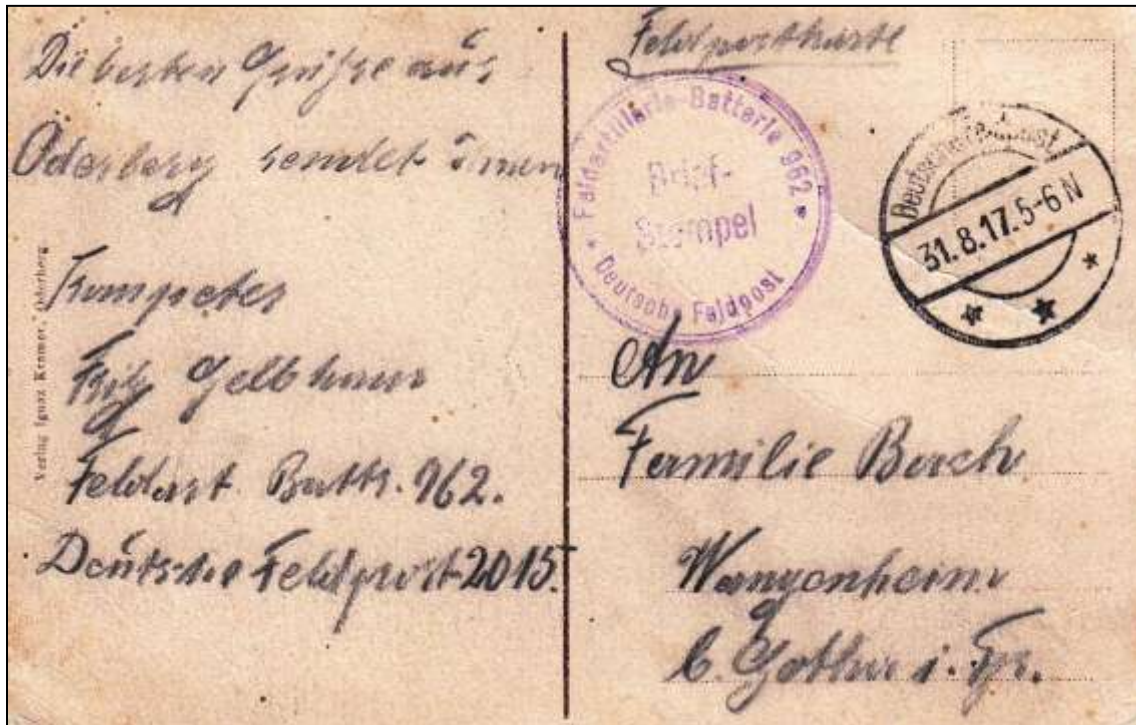 Die besten Grüße aus
Oderberg sendet Ihnen
Trompeter
Fritz
Feldart. Battr. 962.
Deutsche Feldpost 2015.
Verlag Ignaz Kremer, Oderberg
Feldpostkarte
* Feldartillerie-Batterie 962 *
Brief-
Stempel
Deutsche Feldpost
Deutsche Feldpost
31.8.17.5-6N
An
Familie
Wangenheim
b. Gotha i. Th.